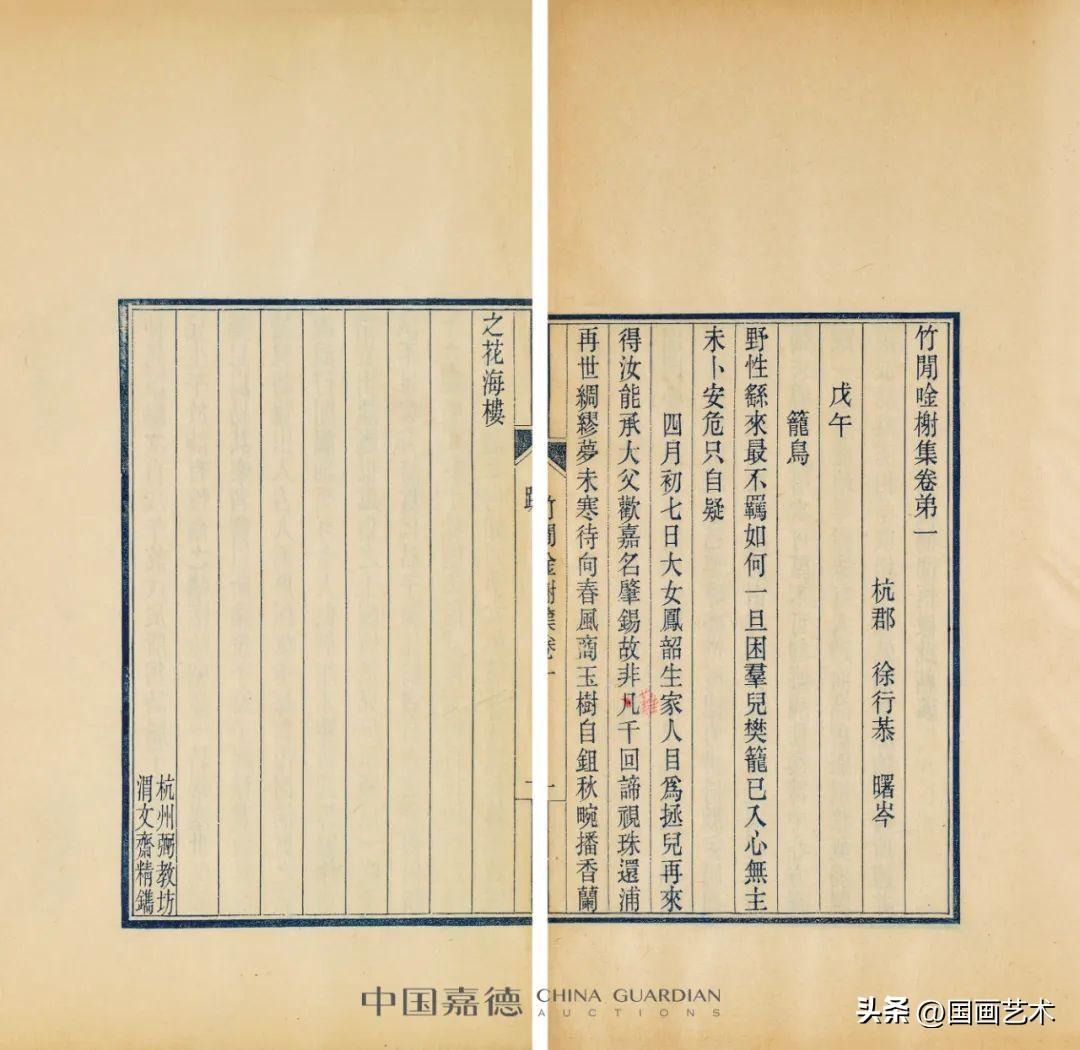 竹閒唫榭集卷弟一
杭郡 徐行恭 曙岑
戊午
籠鳥
野性繇來最不羈如何一旦困羣兒樊籠已入心無主
未卜安危只自疑
四月初七日大女鳳韶生家人目爲拯兒再來
得汝能承大父歡嘉名肇錫故非凡千回諦視珠還浦
難
再世綢繆夢未寒待向春風玉樹自鉏秋畹播香蘭
竹閒唫榭集卷一
一
跋
之花海樓
杭州弼教坊
渭文齋精鐫
中国嘉德 CHINA GUARDIAN
AUCTIONS
头条 @国画艺术